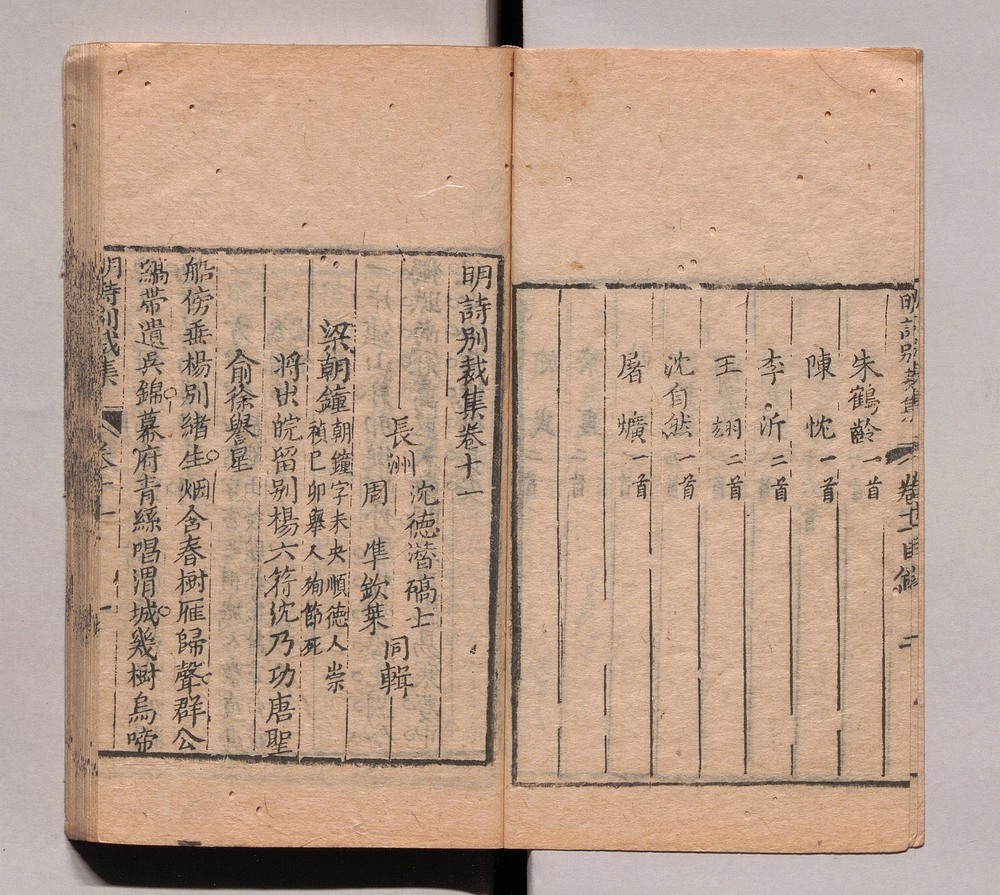 明詩別裁集 卷十一目錄 二
朱鶴齡一首
陳忱一首
李沂二首
王翃二首
沈自然一首
屠爌一首
明詩別裁集卷十一
長洲 沈德潛碻士
周準欽萊 同輯
梁朝鐘朝鐘字未央順德人崇
禎己卯舉人殉節死
將出皖留別楊六符沈乃功唐聖
俞徐譽星
船傍垂楊別緒生烟含春樹雁歸聲群公
縞帶遺吳錦幕府青絲唱渭城幾樹烏啼
明詩別裁集 卷十一 一